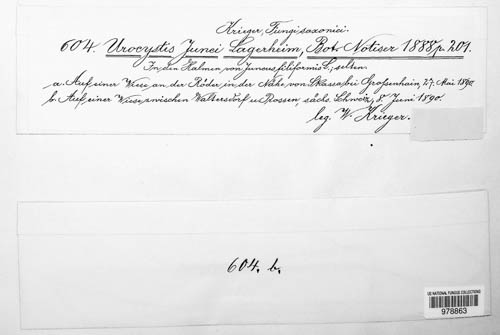 Krieger, Fungi saxonici.
604. Urocystis Junci Lagerheim, Bot. Notiser 1888, p. 201.
In den Halmen von Juncus filiformis L.; selten.
a. Auf einer Wiese an der Röder, in der Nähe von Skassa bei Großenhain, 27. Mai 1890.
b. Auf einer Wiese zwischen Waltersdorf u. Prossen, sächs. Schweiz, 8. Juni 1890.
leg. W. Krieger.
604. b.
US NATIONAL FUNGUS COLLECTIONS
978863